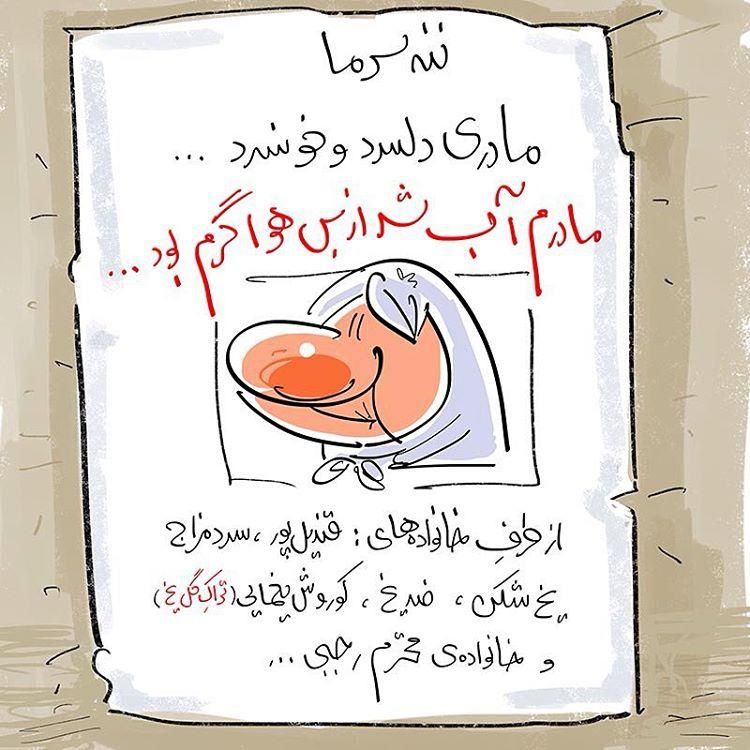 ننه سرما
مادری دلسرد و خونسرد ...
مادرم آب شد از بس هوا گرم بود ...
از طرف خانواده‌های : قندیل‌پور ، سردمزاج
یخ شکن ، ضدیخ ، کوروش یغمایی (تراک گل یخ)
و خانواده‌ی محترم رجبی ...